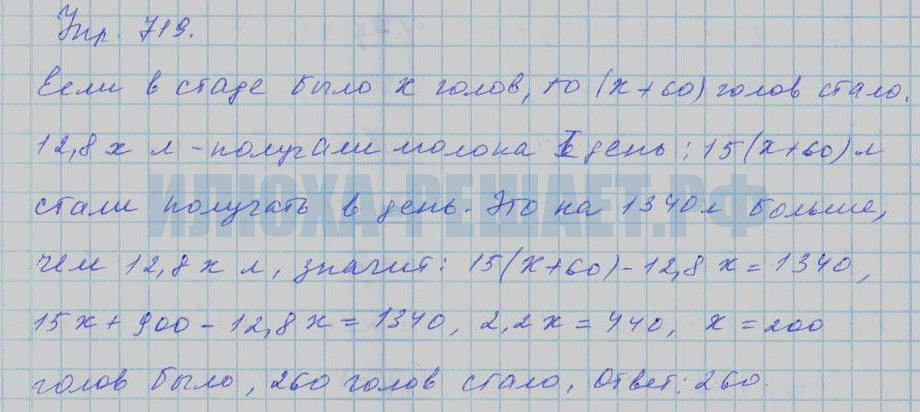 Упр. 719.
Если в стаде было x голов, то (x+60) голов стало.
12,8 x л - получали молока I день; 15(x+60) л
ИЛЮХА-РЕШАЕТ.РФ
стали получать в день. Это на 1340 л больше,
чем 12,8 x л, значит: 15(x+60)-12,8 x = 1340,
15x + 900 - 12,8x = 1340, 2,2x = 440, x = 200
голов было, 260 голов стало, Ответ: 260.